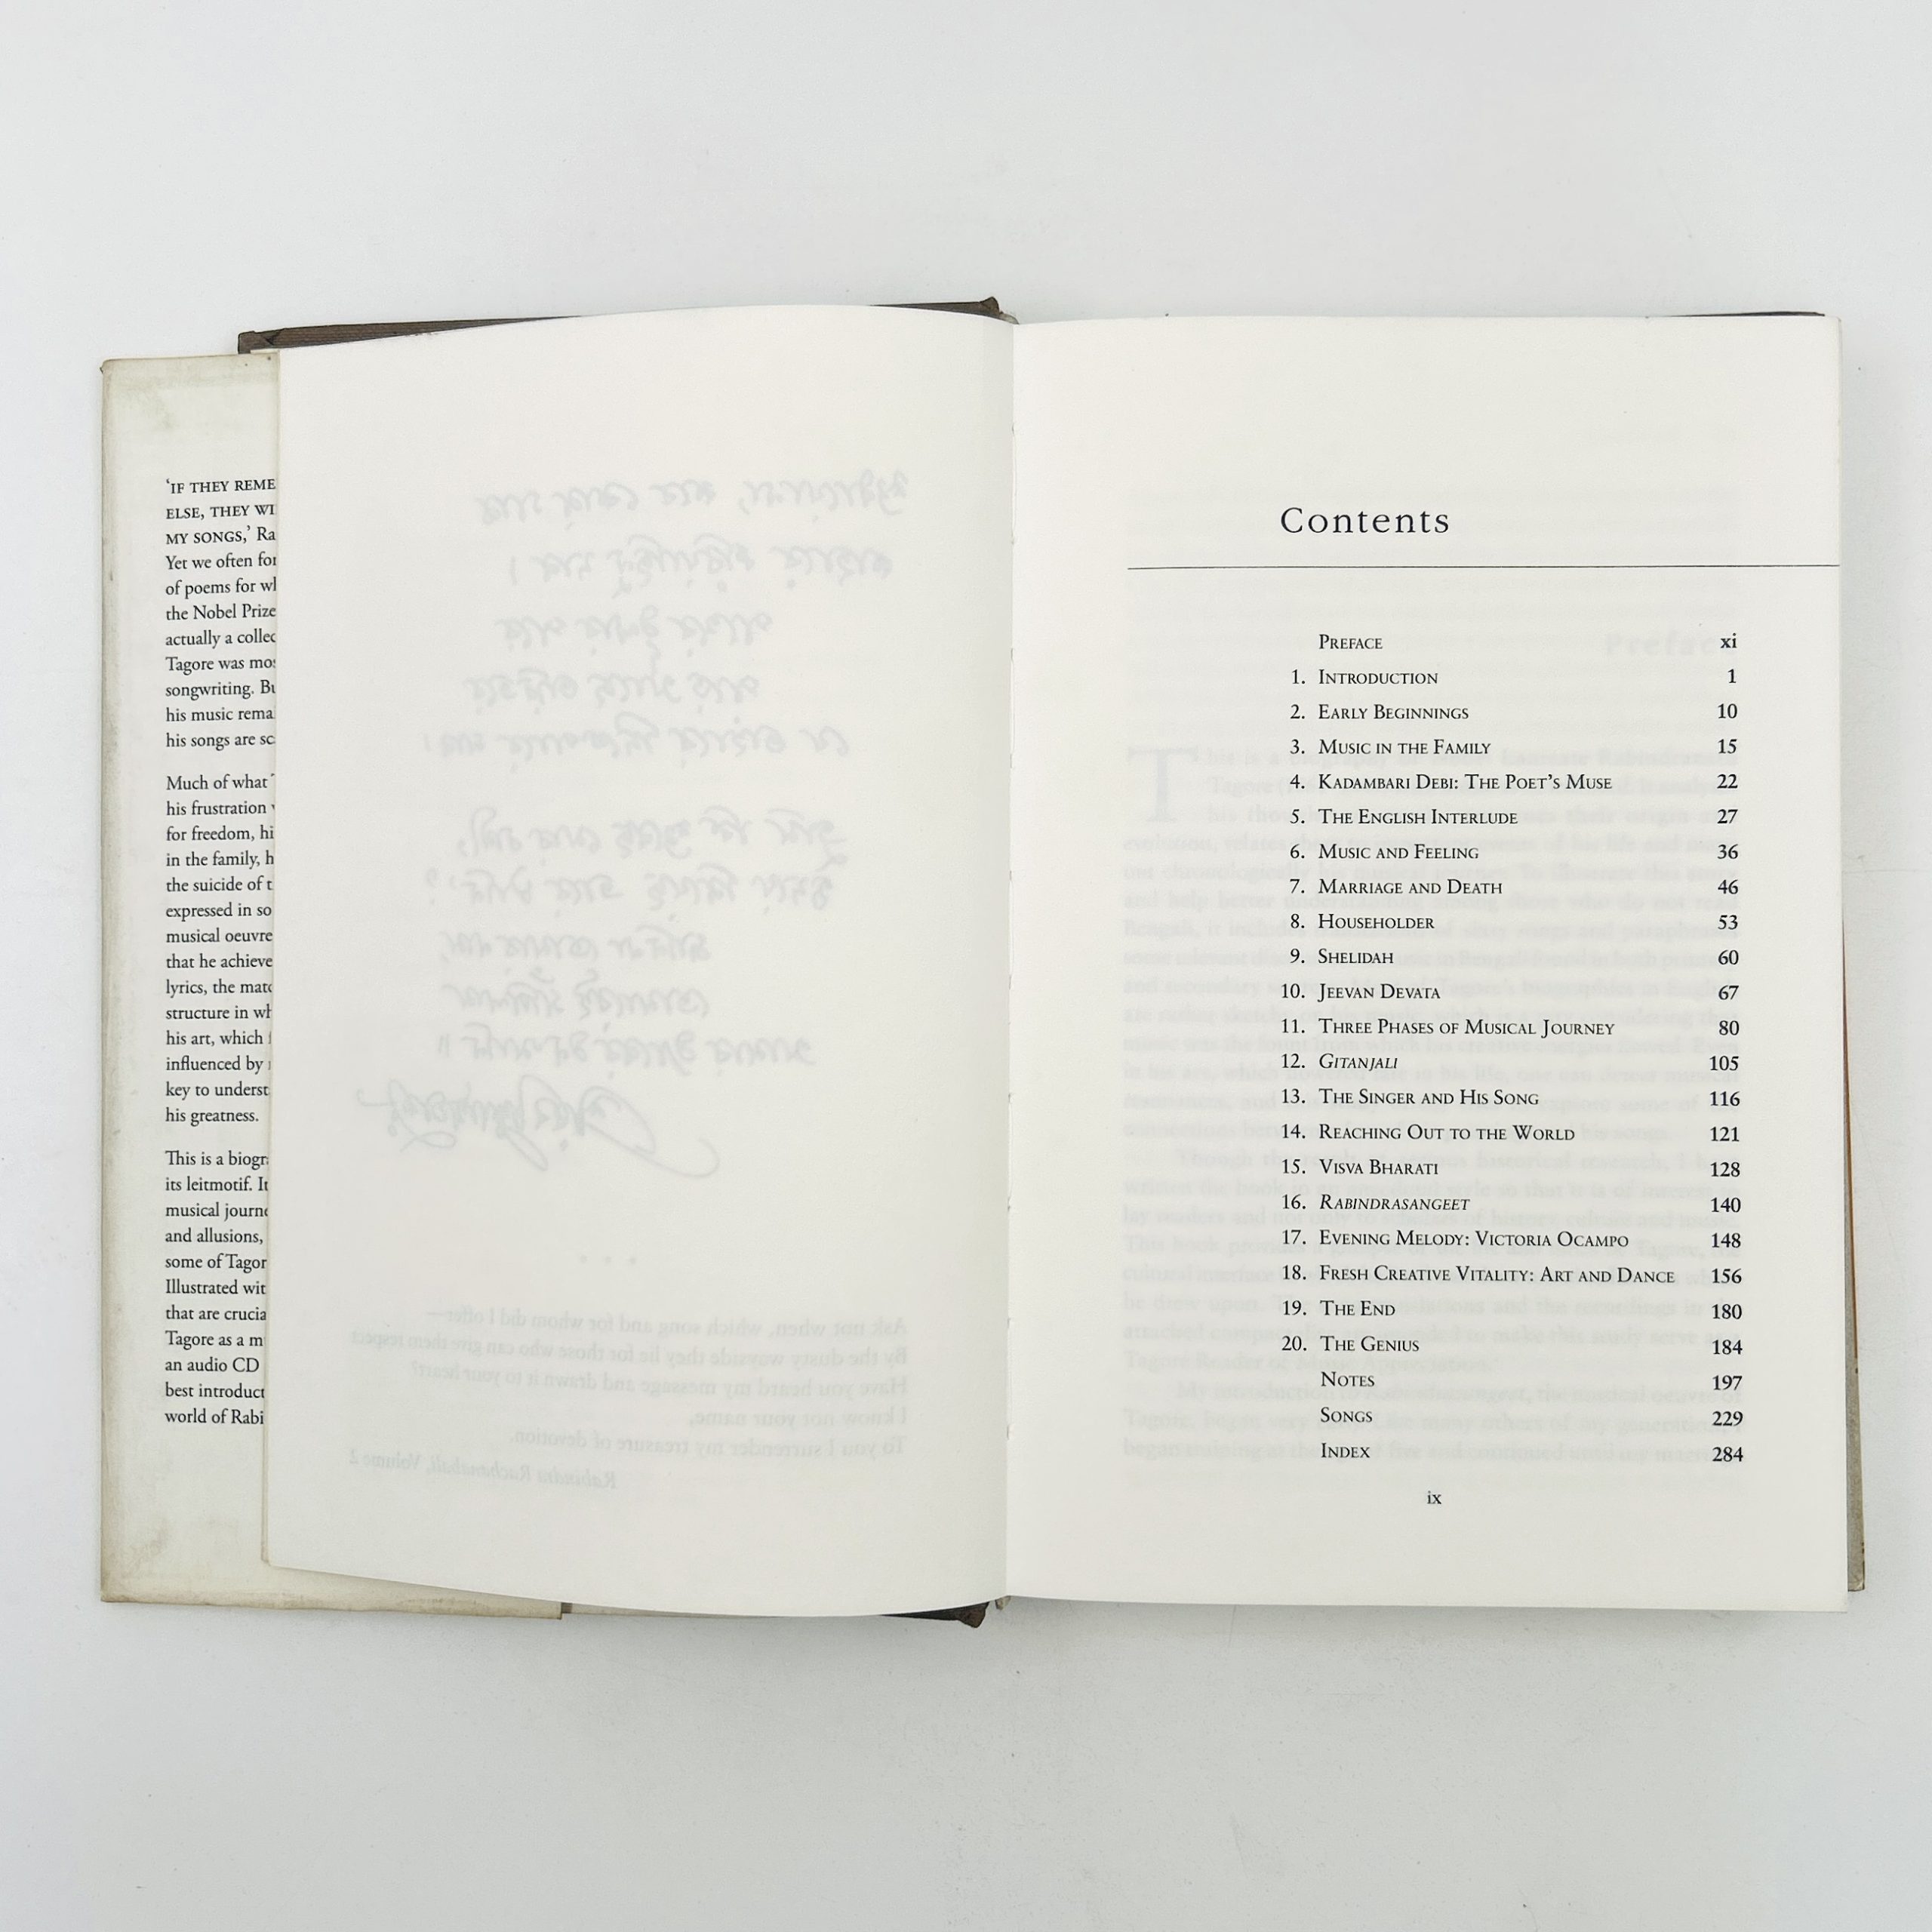 ‘IF THEY REME
ELSE, THEY WI
MY SONGS,’ Ra
Yet we often for
of poems for wh
the Nobel Prize
actually a collec
Tagore was mos
songwriting. Bu
his music rema
his songs are sc
Much of what
his frustration
for freedom, hi
in the family, h
the suicide of t
expressed in so
musical oeuvre
that he achieve
lyrics, the matc
structure in wh
his art, which
influenced by
key to underst
his greatness.
This is a biogr
its leitmotif. It
musical journe
and allusions,
some of Tagor
Illustrated wit
that are crucia
Tagore as a m
an audio CD
best introduct
world of Rabi
Contents
PREFACE xi
1. INTRODUCTION 1
2. EARLY BEGINNINGS 10
3. MUSIC IN THE FAMILY 15
4. KADAMBARI DEBI: THE POET’S MUSE 22
5. THE ENGLISH INTERLUDE 27
6. MUSIC AND FEELING 36
7. MARRIAGE AND DEATH 46
8. HOUSEHOLDER 53
9. SHELIDAH 60
10. JEEVAN DEVATA 67
11. THREE PHASES OF MUSICAL JOURNEY 80
12. GITANJALI 105
13. THE SINGER AND HIS SONG 116
14. REACHING OUT TO THE WORLD 121
15. VISVA BHARATI 128
16. RABINDRASANGEET 140
17. EVENING MELODY: VICTORIA OCAMPO 148
18. FRESH CREATIVE VITALITY: ART AND DANCE 156
19. THE END 180
20. THE GENIUS 184
NOTES 197
SONGS 229
INDEX 284
ix